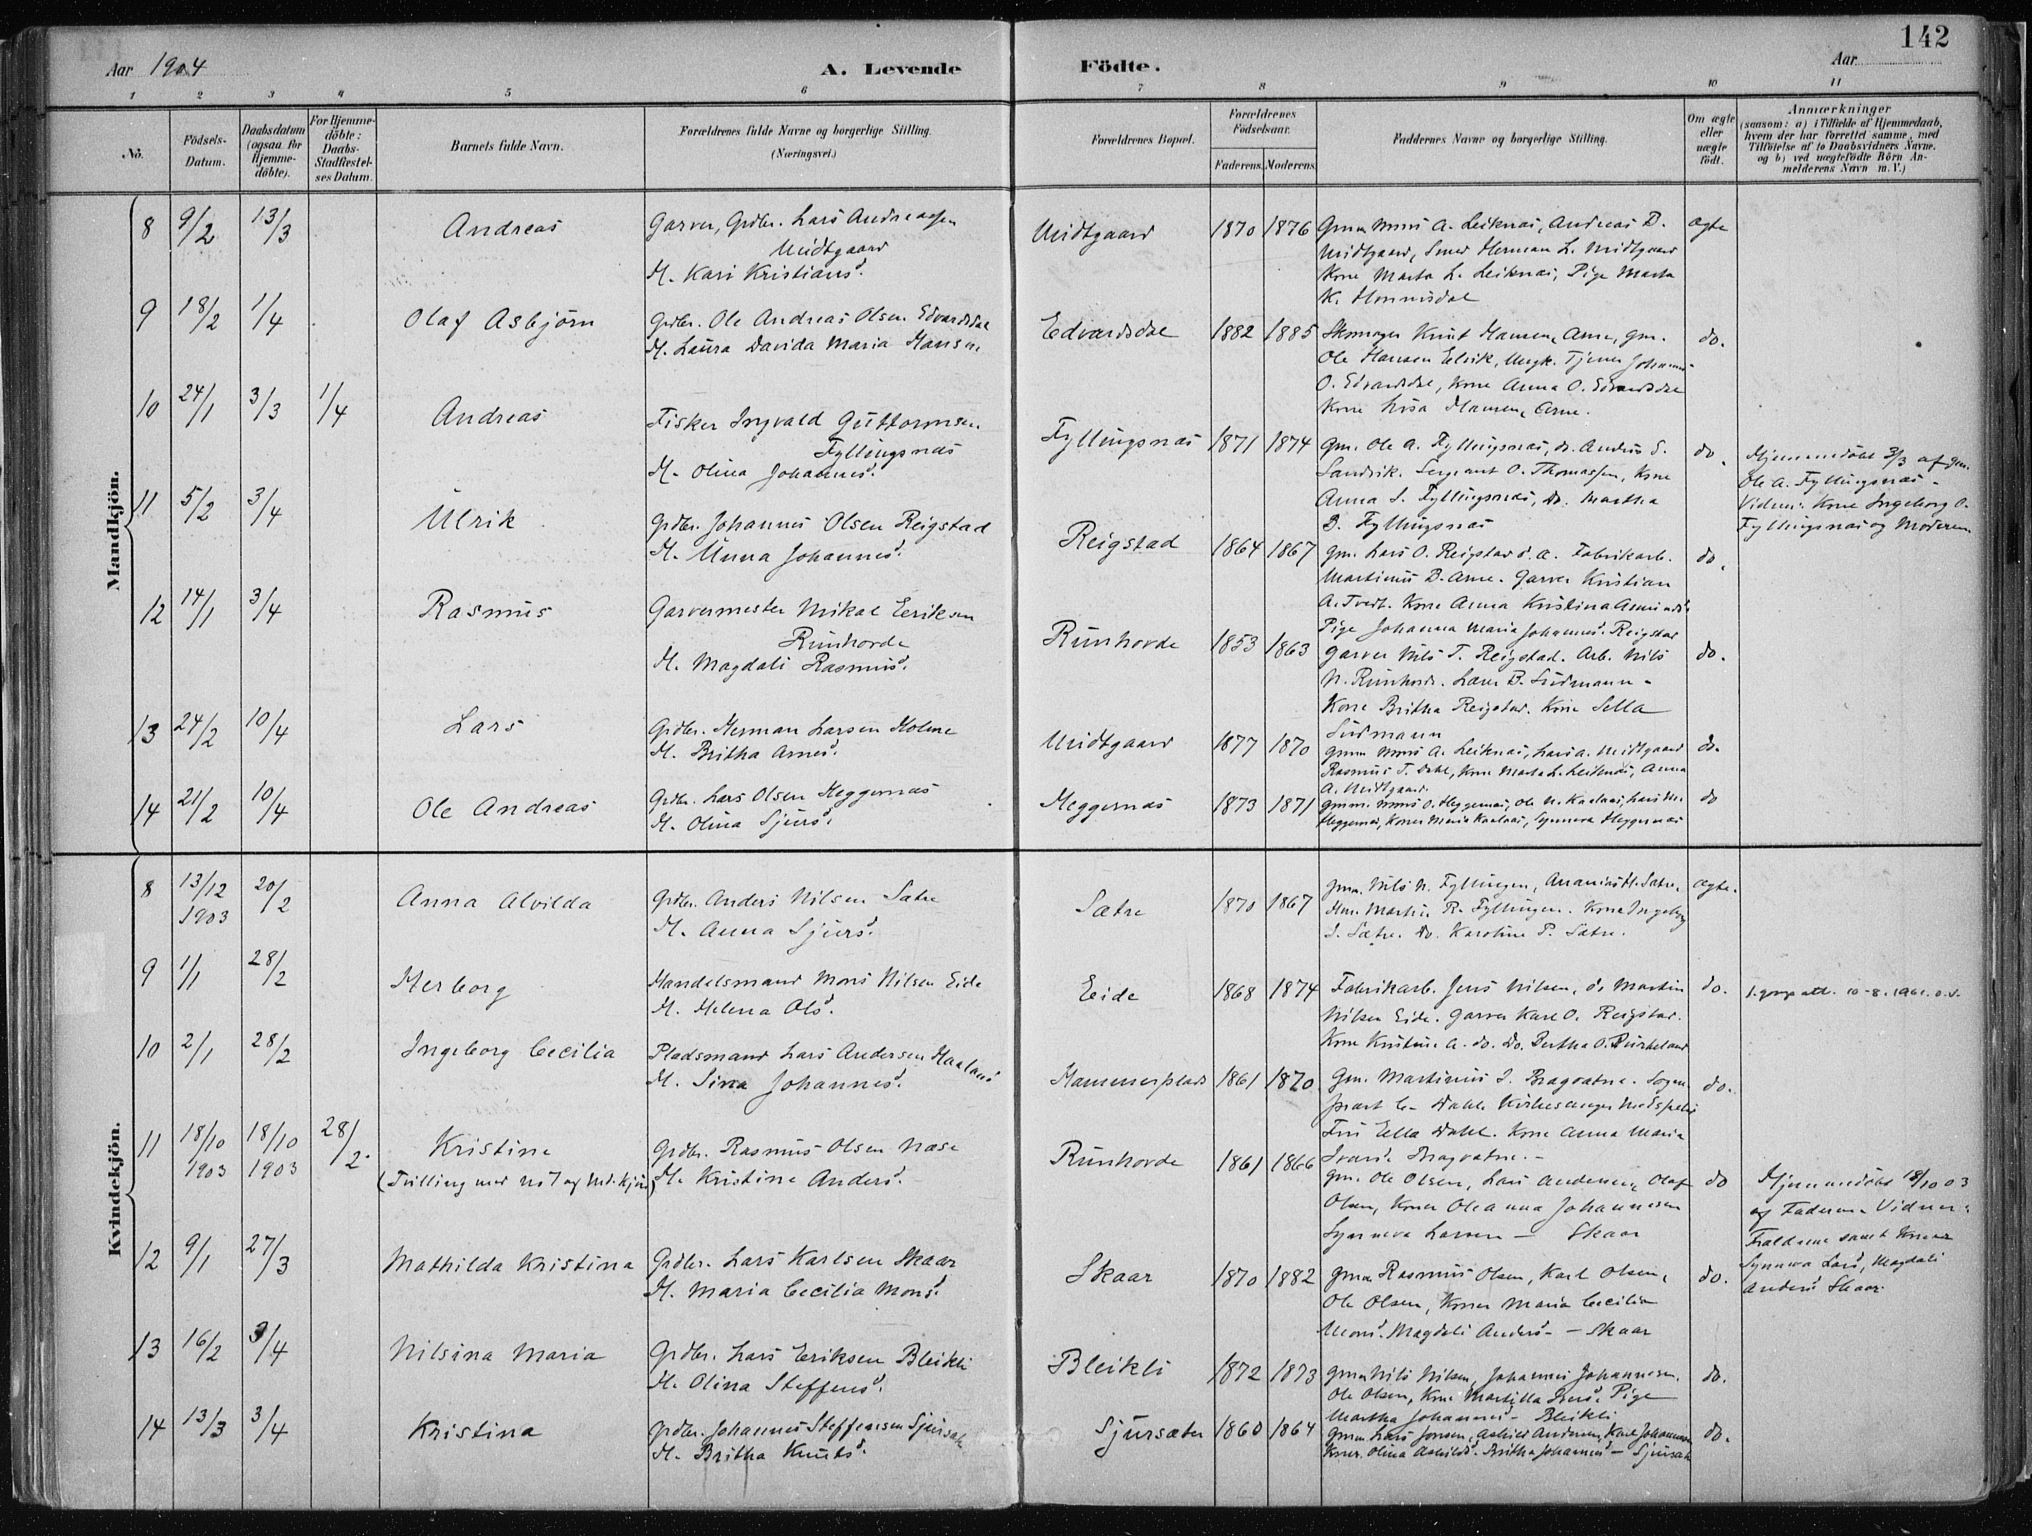 142
Aar 1904
A. Levende
Födte.
Aar
1 2 3 4 5 6 7 8 9 10 11
No.
Födsels-Datum.
Daabsdatum (ogsaa for Hjemme-döbte).
For Hjemme-döbte: Daabs-Stadfæstel-ses Datum.
Barnets fulde Navn.
Forældrenes fulde Navne og borgerlige Stilling. (Næringsvei.)
Forældrenes Bopæl.
Forældrenes Födselsaar.
Faderens. Moderens.
Faddernes Navne og borgerlige Stilling.
Om ægte eller uægte födt.
Anmærkninger
(saasom: a) i Tilfælde af Hjemmedaab,
hvem der har forrettet samme, med
Tilföielse af to Daabsvidners Navne.
og b) ved uægtefödte Börn An-
melderens Navn m. V.)
Mandkjön.
8 9/2 13/3 Andreas
Garver, Grdbr. Lars Andreassen
Midtgaard
H. Kari Kristians d.
Midtgaard 1870 1876
Gmm Mons A. Leiknas, Andreas B.
Midtgaard, Smed Herman L. Midtgaard
Kone Marta L. Leiknas, Pige Marta
K.
ægte
9 18/2 1/4 Olaf Asbjörn
Grdbr. Ole Andreas Olsen Edvardsdal
H. Laura Davida Maria Hansen
Edvardsdal 1882 1885
Skomager Knut Hansen, Arne, gm.
Ole Hansen Eelvik, Ungk. Tjener Johannes
O. Edvardsdal, Kone Anna O. Edvardsdal
Kone Lusa Hansen, Arne.
do.
10 24/1 3/3 1/4 Andreas
Fisker Ingvald Guttormsen
Fyllingsnæs
H. Olina Johannes d.
Fyllingsnæs 1871 1874
Gm. Ole A. Fyllingsnæs, do. Andreas S.
Sandvik. Sergeant O. Thomassen, Kone
Anna S. Fyllingsnæs, Do. Martha
B. Fyllingsnæs
do.
Hjemmedöbt 3/3 af gm.
Ole A. Fyllingsnæs.
Vidner: Kone Ingeborg O.
Fyllingsnæs og Moderen
11 5/2 3/4 Ulrik
Grdbr. Johannes Olsen Reigstad
H. Unna Johannes d.
Reigstad 1864 1867
gm. Lars O. Reigstad. Fabrikarb.
Martinus B. Arne. Garver Kristian
A. Tvedt. Kone Anna Kristina
Pige Johanna Maria Johannes d. Reigstad
do.
12 14/1 3/4 Rasmus
Garvermester Mikal Eeriksen
Runhovde
H. Magdali Rasmus d.
Runhovde 1853 1863
Garver Nils T. Reigstad. Arb. Nils
N. Runhovde. Lærer B. Sudmann
Kone Britha Reigstad. Kone Sella
Sudmann
do.
13 24/2 10/4 Lars
Grdbr. Herman Larsen Holme
H. Britha Arnes d.
Midtgaard 1877 1870
Gmm Mons A. Leiknas, Lars A. Midtgaard
Rasmus T. Dahl, Kone Marta L. Leiknas, Anna
A. Midtgaard.
do.
14 21/2 10/4 Ole Andreas
Grdbr. Lars Olsen Heggernæs
H. Olina Sjurs d.
Heggernæs 1873 1871
gmm. Mons O. Heggernæs, Ole N. Kaalaas, Lars M.
Heggernæs, Koner Maria Kaalaas, Synneva Heggernæs
do
Kvindekjön.
8 13/12 1903 20/2 Anna Alvilda
Grdbr. Anders Nilsen Sætre
H. Anna Sjurs d.
Sætre 1870 1867
Gmm. Nils N. Fyllingen, Ananias H. Sætre.
Martin R. Fyllingen. Kone Ingeborg
S. Sætre. Do. Karoline P. Sætre.
ægte.
9 1/1 28/2 Herborg
Handelsmand Mons Nilsen Eide
H. Helena Ols d.
Eide 1868 1874
Fabrikarb. Jens Nilsen, do Martin
Nilsen Eide. Garver Karl O. Reigstad.
Kone Kristine A. do. Do. Bertha O. Birkeland
do.
10 2/1 28/2 Ingeborg Cecilia
Pladsmand Lars Andersen Haaland
H. Sina Johannes d.
Hammerplads 1861 1870
Gm. Martinus I. Bragvatne. Sogne-
præst C. Dahl. Kirkesanger
Fru Ella Dahl. Kone Anna Maria
Ivars d. Bragvatne.
do.
11 18/10 1903 18/10 1903 28/2 Kristine
(Tvilling med No 7 af Mdkjön)
Grdbr. Rasmus Olsen Næse
H. Kristine Anders d.
Runhovde 1861 1866
Gm. Ole Olsen, Lars Andersen, Olaf
Olsen, Koner Oleanna Johannesen
Synneva Larsen - Skaar
do
Hjemmedöbt 18/10 03
af Faderen. Vidner:
Forældrene samt Koner
Synneva Lars d, Magdali
Anders d Skaar.
12 9/1 27/3 Mathilda Kristina
Grdbr. Lars Karlsen Skaar
H. Maria Cecilia Mons d.
Skaar 1870 1882
gmm Rasmus Olsen, Karl Olsen,
Ole Olsen, Koner Maria Cecilia
Mons d. Magdali Anders d - Skaar
do.
13 16/2 3/4 Nilsina Maria
Grdbr. Lars Eriksen Bleikli
H. Olina Steffens d.
Bleikli 1872 1873
gmm Nils Nilsen, Johannes Johannesen.
Ole Olsen, Kone Pige
Martha Johannes d - Bleikli
do.
14 13/3 3/4 Kristina
Grdbr. Johannes Steffensen Sjursæter
H. Britha Knuts d.
Sjursæter 1860 1864
gmm Lars Jonsen, Askild Andersen, Karl Johannesen
Koner Olina Askilds d. Britha Johannes d - Sjursæter
do.